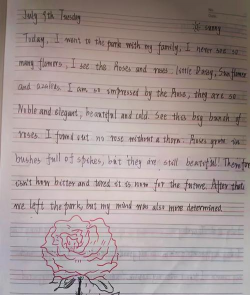 July 9th Tuesday sunny
Today, I went to the park with my family, I never see so
many flowers, I see the Roses and roses, Daisy, Sunflower
and azalea. I am so impressed by the Roses, they are so
Noble and elegant, beautiful and cold. See this big branch of
roses. I found out no rose without a thorn. Roses grow in
bushes full of spikes, but they are still beautiful! Therefore
isn't how bitter and tired it is now for the future. After that
we left the park, but my mind was also more determined.